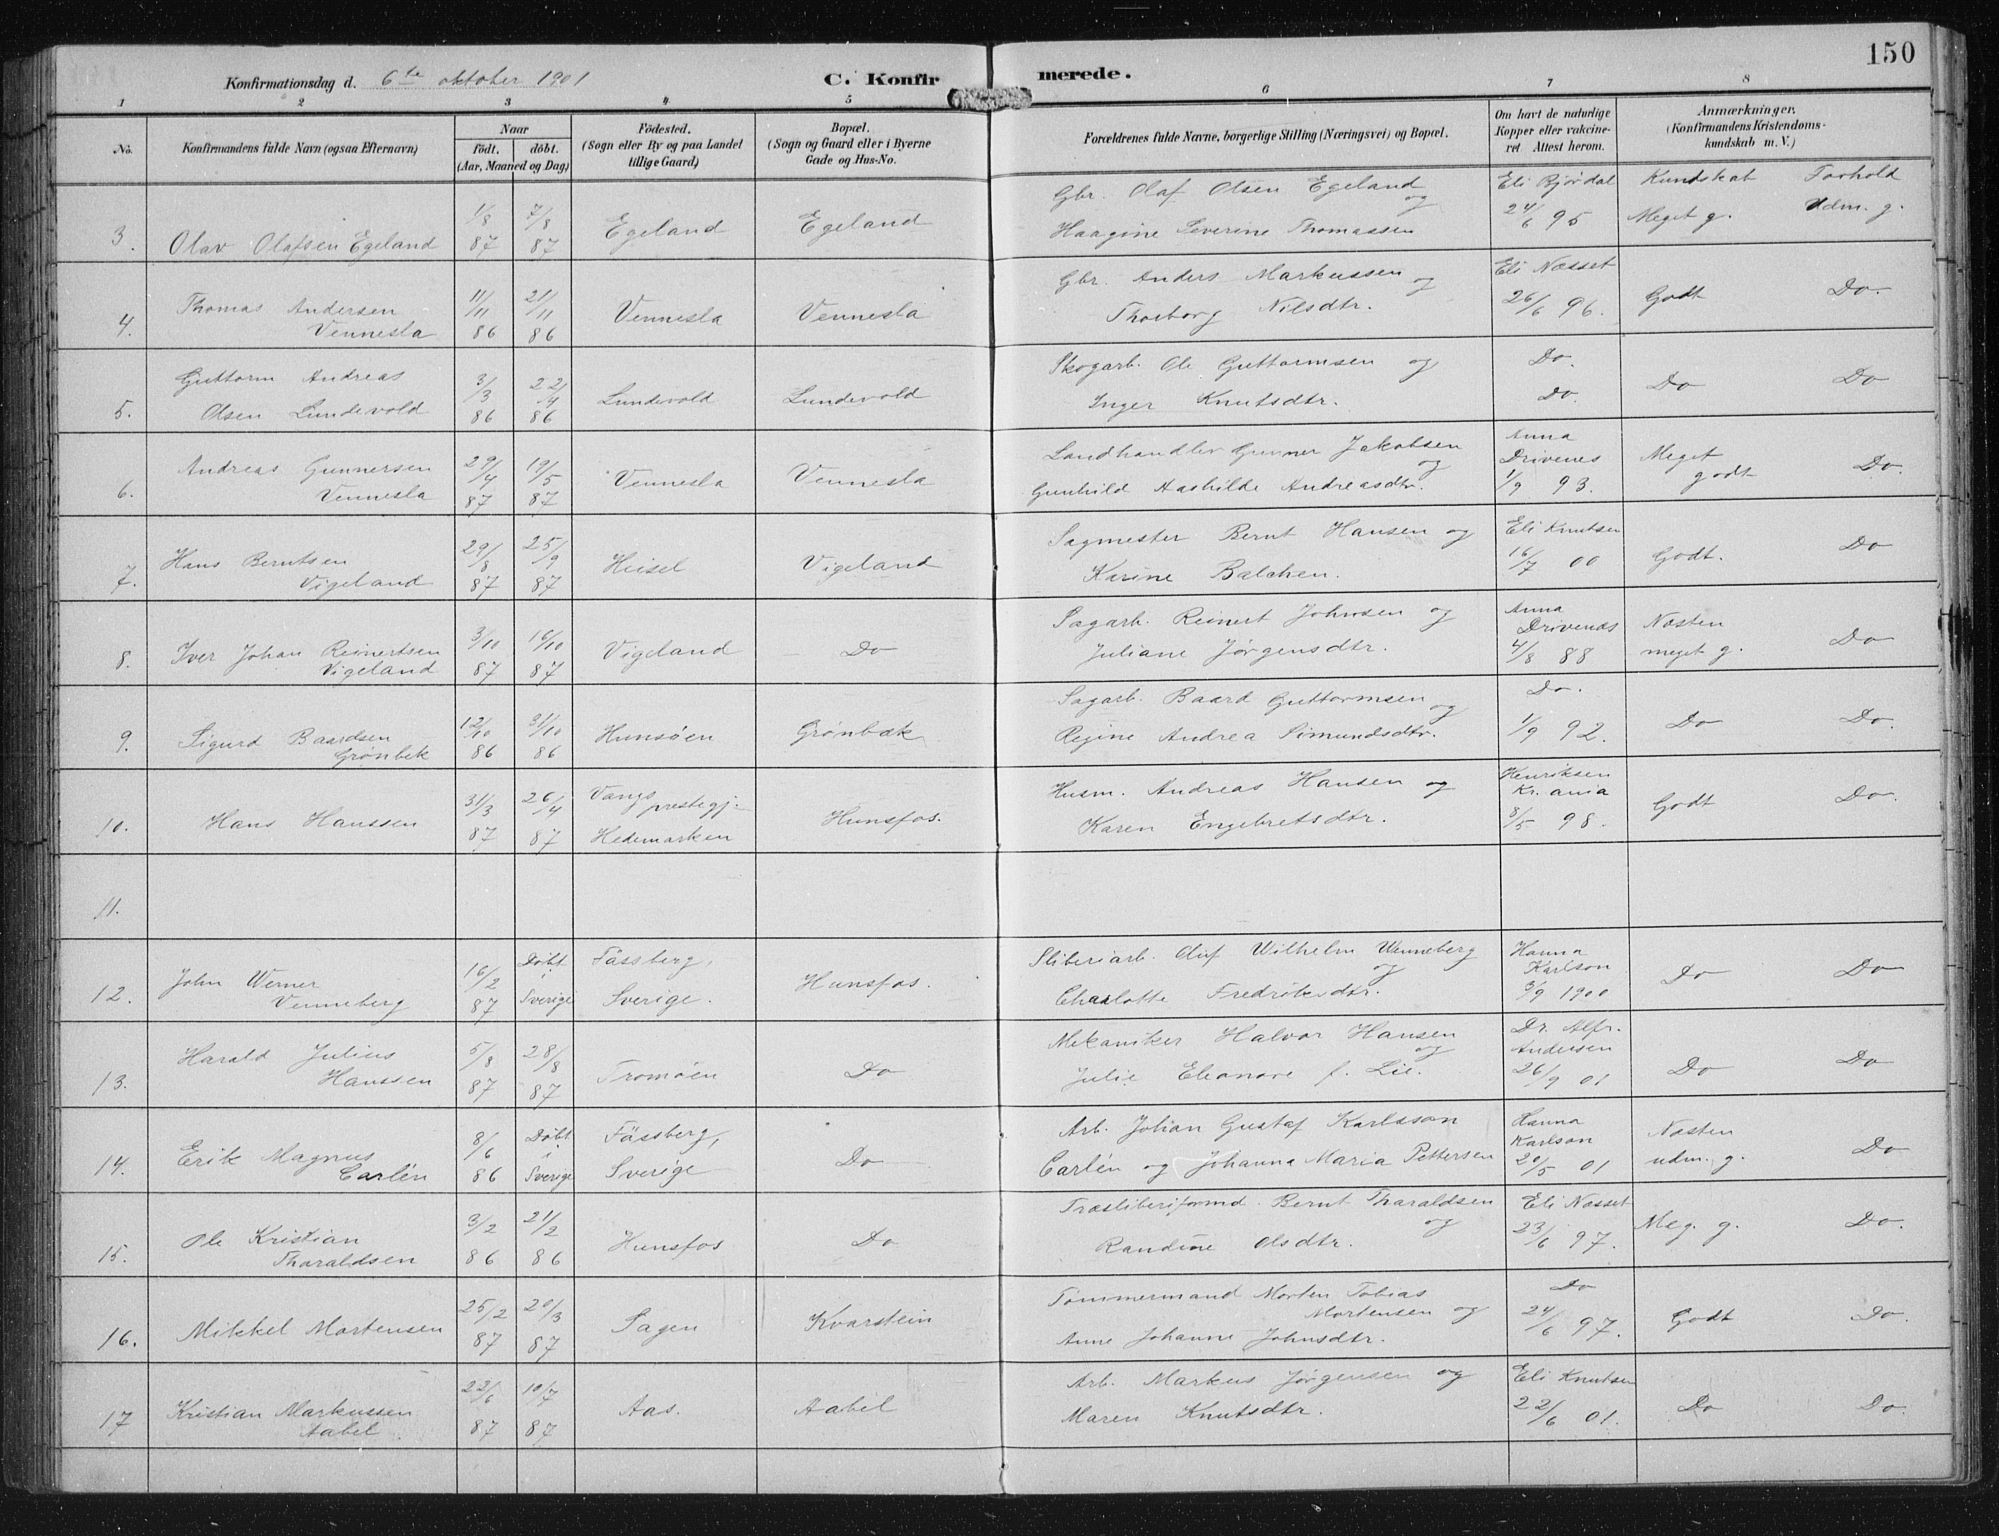 150
Konfirmationsdag d. 6te oktober 1901
C. Konfirmerede.
1 2 3 4 5 6 7 8
No.
Konfirmandens fulde Navn (ogsaa Efternavn)
Naar
födt. döbt.
(Aar, Maaned og Dag)
Födested.
(Sogn eller By og paa Landet
tillige Gaard)
Bopæl.
(Sogn og Gaard eller i Byerne
Gade og Hus-No.
Forældrenes fulde Navne, borgerlige Stilling (Næringsvei) og Bopæl.
Om havt de naturlige
Kopper eller vakcine-
ret. Attest herom.
Anmærkninger.
(Konfirmandens Kristendoms-
kundskab m. V.)
Kundskab Forhold
3. Olav Olafsen Egeland
1/8 87 7/8 87
Egeland Egeland
Gbr. Olaf Olsen Egeland og
Haagine Severine Thomassen
Eli Bjørdal
24/6 95
Meget g. Udm. g.
4. Thomas Andersen
Vennesla
11/11 86 21/11 86
Vennesla Vennesla
Gbr. Anders Markussen og
Thorborg Nilsdtr.
Eli Næsset
26/6 96.
Godt Do.
5. Guttorm Andreas
Olsen Lundevold
3/3 86 22/4 86
Lundevold Lundevold
Skogarb. Ole Guttormsen og
Inger Knutsdtr.
Do.
Do.
Do Do
6. Andreas Gunnersen
Vennesla
29/4 87 19/5 87
Vennesla Vennesla
Landhandler Gunner Jakobsen og
Gunhild Aashilde Andreasdtr.
Anna
Drivenes
1/9 93.
Meget
godt Do.
7. Hans Berntsen
Vigeland
29/8 87 25/9 87
Heisel Vigeland
Sagmester Bernt Hansen og
Karine Balchen.
Eli Knutsen
16/7 00
Godt. Do
8. Iver Johan Reinertsen
Vigeland
3/10 87 16/10 87
Vigeland Do
Sagarb. Reinert Johnsen og
Juliane Jørgensdtr.
Anna
Drivenes
4/8 88
Næsten
meget g. Do
9. Sigurd Baardsen
Grønbek
12/10 86 31/10 86
Hunsøen Grønbæk
Sagarb. Baard Guttormsen og
Regine Andrea Simundsdtr.
Do.
1/9 92.
Do Do.
10. Hans Hanssen
31/3 87 26/4 87
Vangs prestegj.
Hedemarken
Hunsfos.
Husm. Andreas Hansen og
Karen Engebretsdtr.
Henriksen
Kr.ania
8/5 98.
Godt Do.
11.
12. John Werner
Venneberg
16/2 87
Døbt i Sverige
Fässberg,
Sverige.
Hunsfos.
Sliberiarb. Oluf Wilhelm Wenneberg og
Charlotte
Hanna
Karlson
3/9 1900
Do Do
13. Harald Julius
Hanssen
5/8 87 28/8 87
Tromøen Do
Mekaniker Halvor Hansen og
Julie Eleonore f. Lie.
Dr. Alfr.
Andersen
26/9 01
Do Do
14. Erik Magnus
Carlén
8/6 86
Døbt i Sverige
Fässberg,
Sverige
Do
Arb. Johan Gustaf Karlsson
Carlén og Johanna Maria Pettersen
Hanna
Karlson
20/5 01
Næsten
udm. g. Do
15. Ole Kristian
Tharaldsen
3/2 86 21/2 86
Hunsfos Do
Træsliberiformd. Bernt Tharaldsen og
Randine Olsdtr.
Eli Næsset
23/6 97.
Meg. g. Do.
16. Mikkel Mortensen
25/2 87 20/3 87
Sagen Kvarstein
Tømmermand Morten Tobias
Mortensen og
Anne Johanne Johnsdtr.
Do
24/6 97.
Godt Do.
17 Kristian Markussen
Aabel
22/6 87 10/7 87
Aas. Aabel
Arb. Markus Jørgensen og
Maren Knutsdtr.
Eli Knutsen
22/6 01.
Do Do.